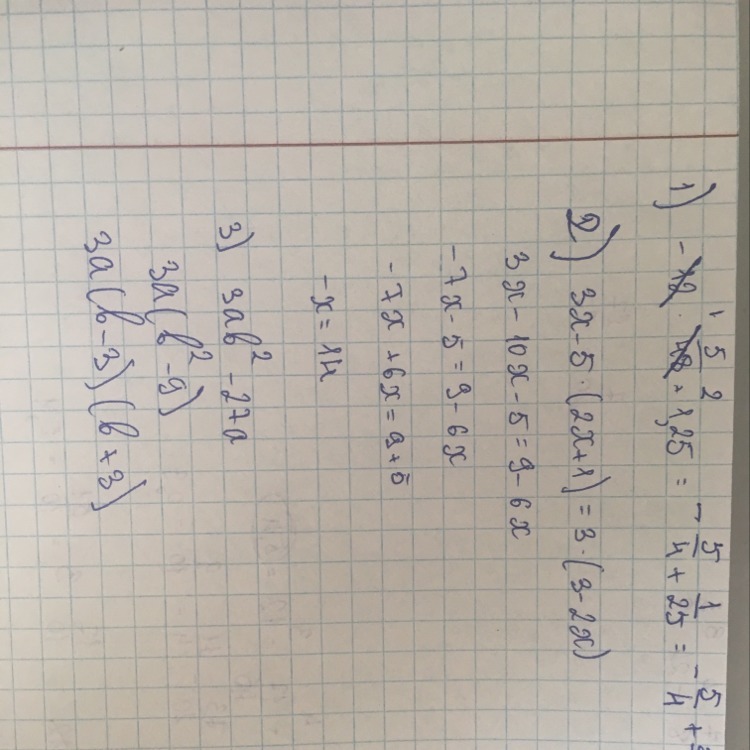 1) -12 · 5/48 + 1,25 = - 5/4 + 1/25 = - 5/4 +
2) 3x - 5 · (2x+1) = 3 · (3-2x)
3x - 10x - 5 = 9 - 6x
-7x - 5 = 9 - 6x
-7x + 6x = 9 + 5
-x = 14
3) 3ab² - 27a
3a(b² - 9)
3a(b-3)(b+3)